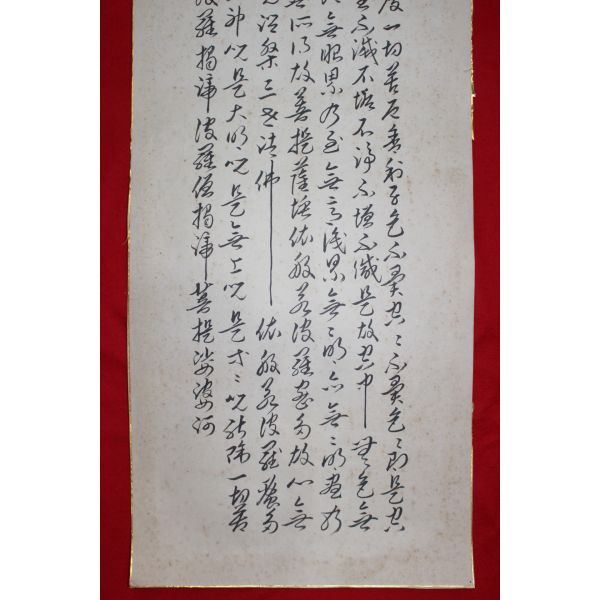 度一切苦厄舎利子色不異空〻不異色〻即是空
生不滅不垢不浄不増不減是故空中無色無
無眼界乃至無意識界無〻明亦無〻明尽乃
無所得故菩提薩埵依般若波羅蜜多故心無
究涅槃三世諸佛依般若波羅蜜多
神呪是大明呪是無上呪是〻呪能除一切苦
波羅揭諦波羅僧揭諦菩提娑婆訶